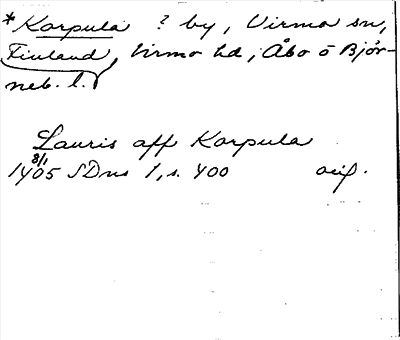 *Karpula ? by, Virmo sn,
Finland, Virmo hd, Åbo o Björ-
neb. l.
Lauris aff Karpula
1405 8/1 SDns 1, s. 400 avif.